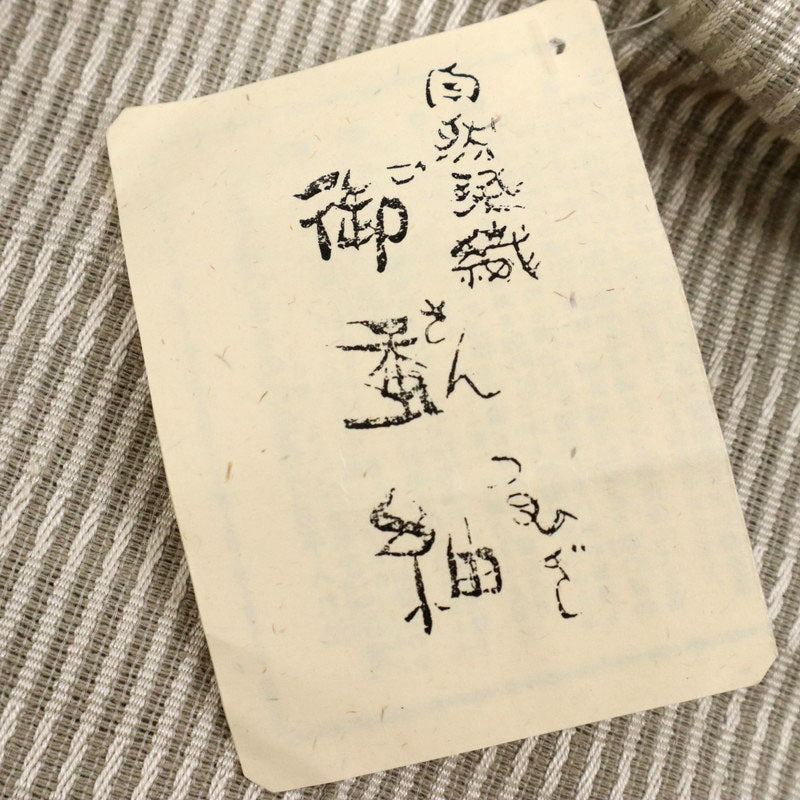 自然染織
御蚕紬
ごさんつむぎ